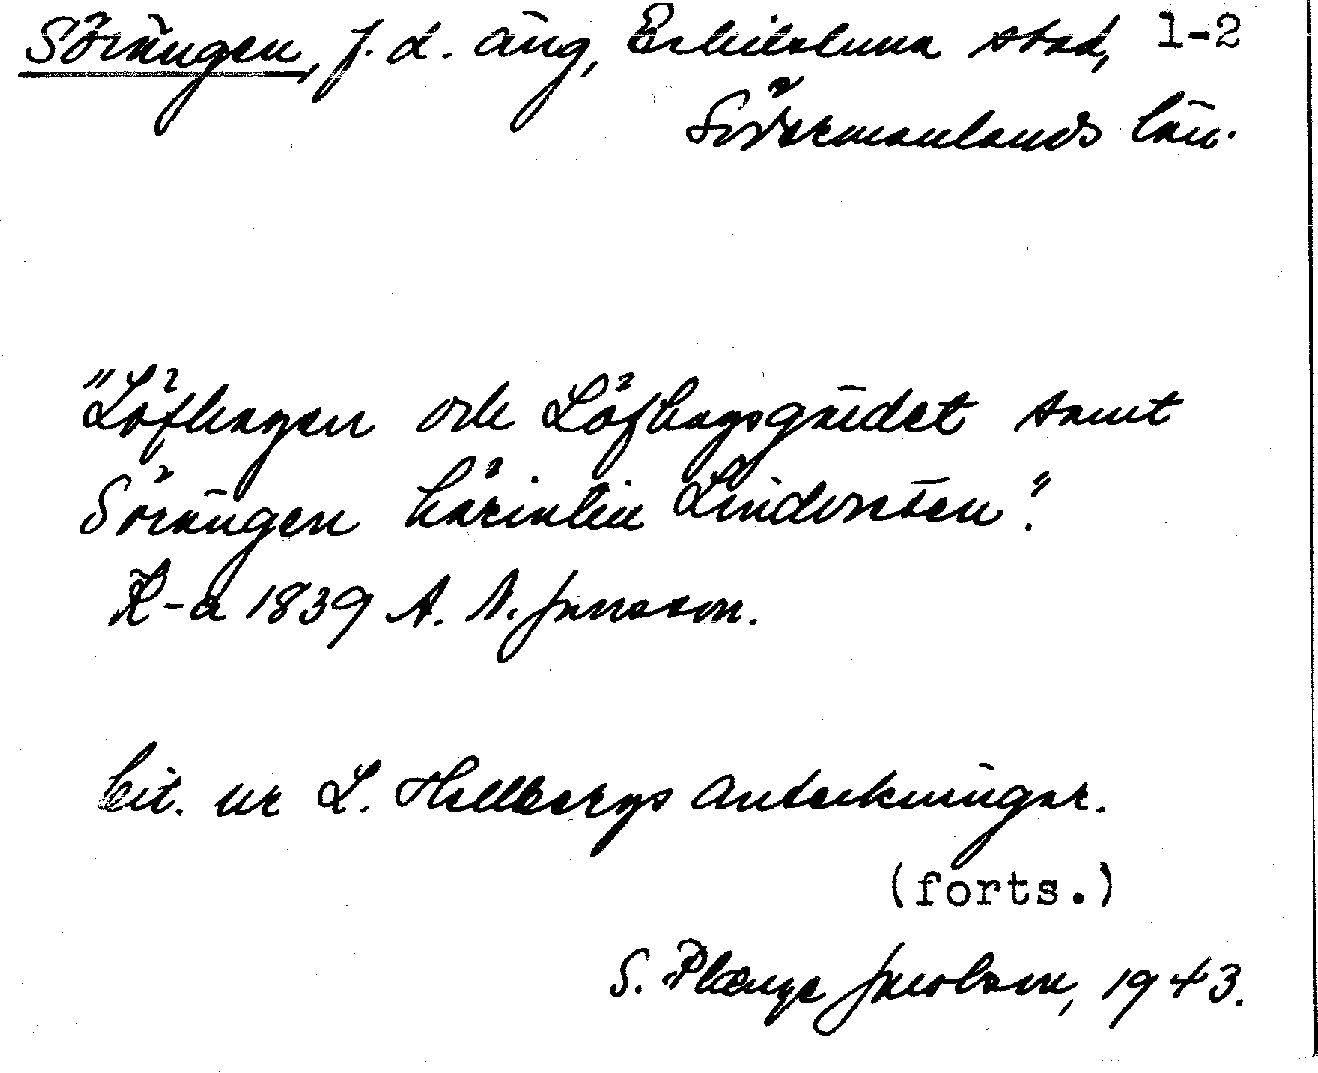 Sörängen, f. d. äng, Eskilstuna stad, 1-2
Södermanlands län.
"Löfhagen och Löfhagsgärdet samt
Sörängen härintill Lindersten".
K-a 1839 A. N. Jansson.
Cit. ur L. Hellbergs anteckningar.
(forts.)
S. Plænge Jacobson, 1943.